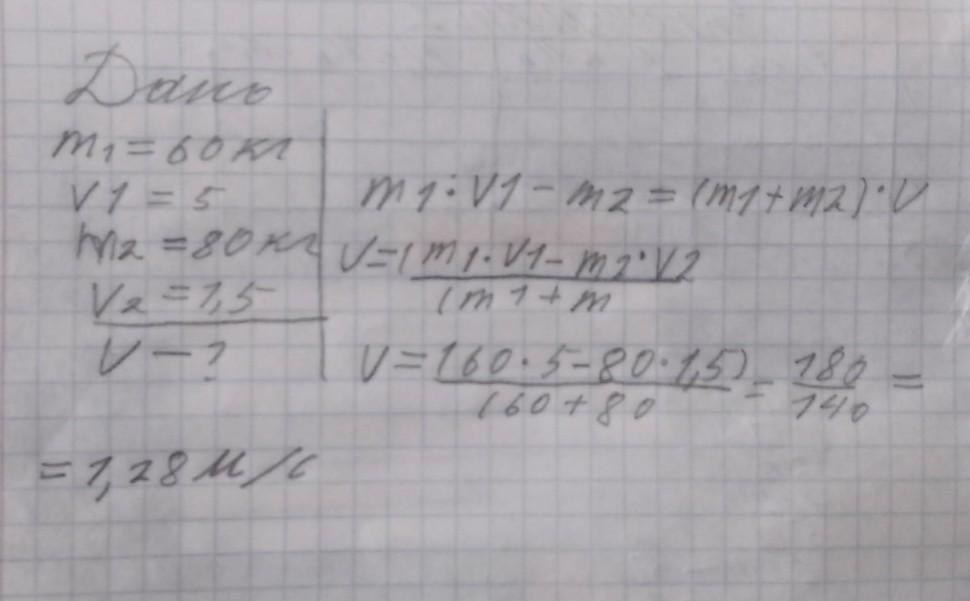 Дано
m1 = 60 кг
V1 = 5
m2 = 80 кг
V2 = 1,5
V - ?
m1 · V1 - m2 = (m1 + m2) · V
V = (m1 · V1 - m2 · V2
(m1 + m
V = (60 · 5 - 80 · 1,5) = 180 =
(60 + 80 140
= 1,28 м/с